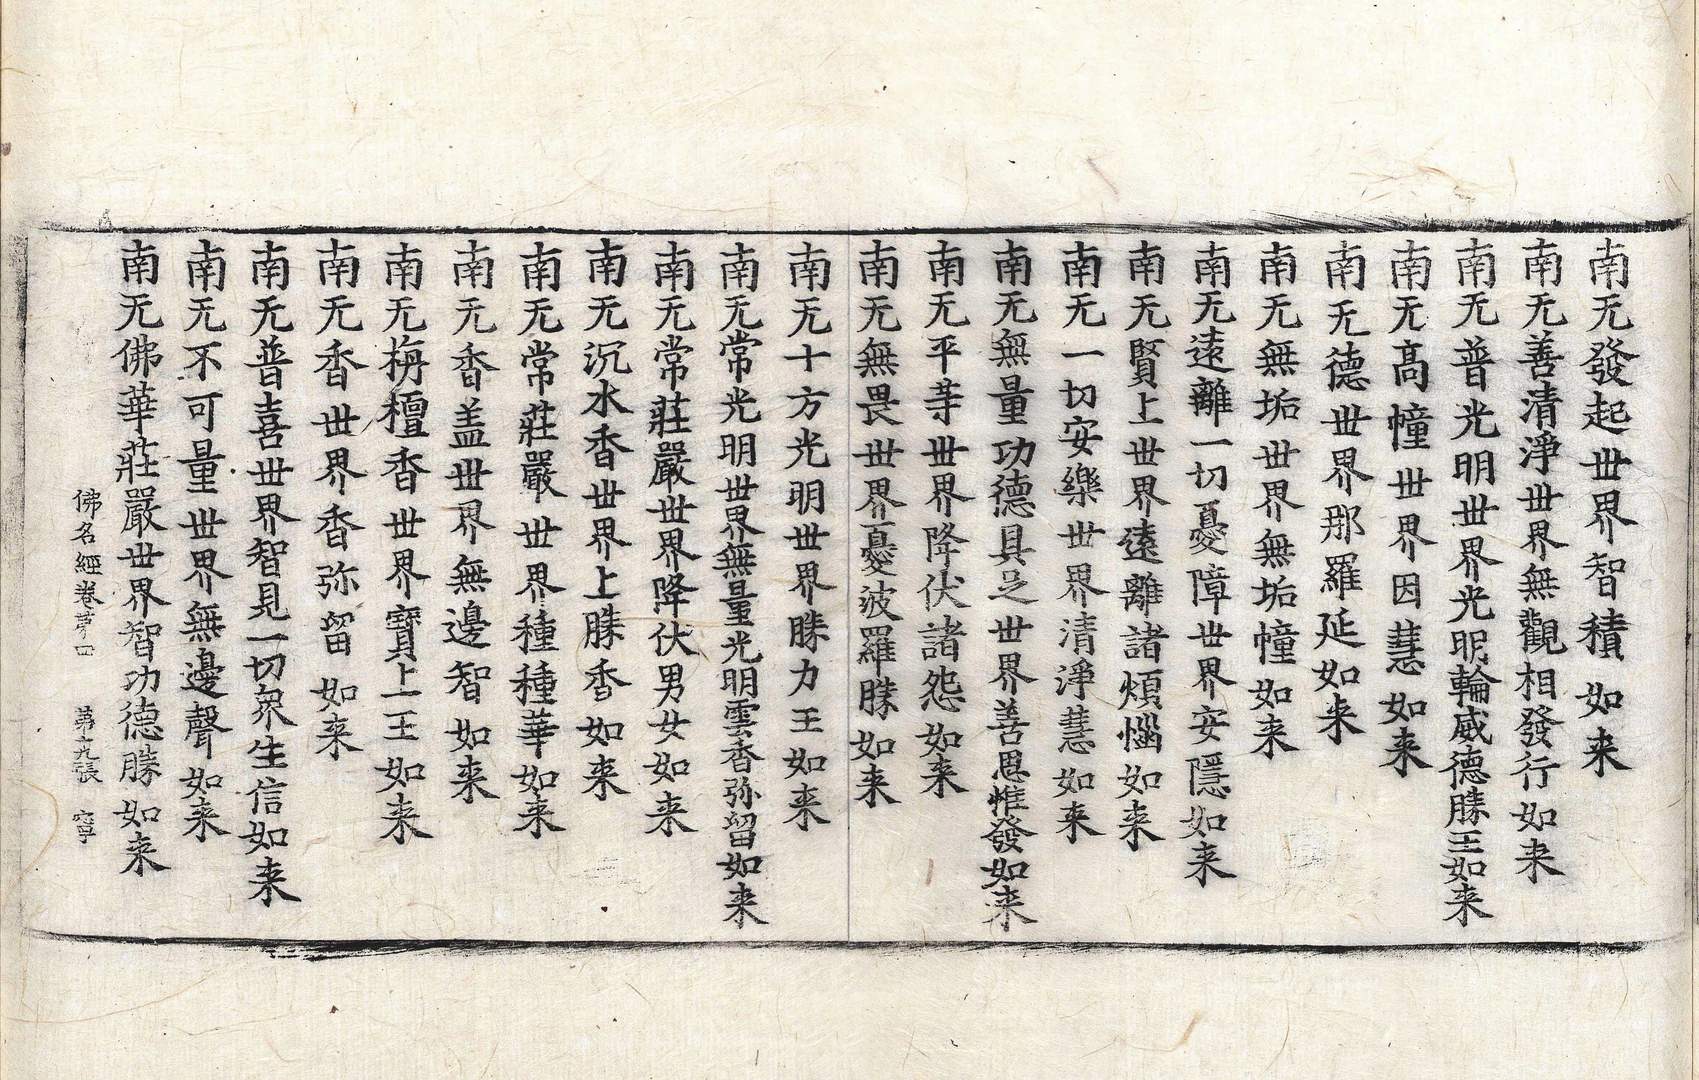 南无發起世界智積如来
南无善清淨世界無觀相發行如来
南无普光明世界光明輪威德勝王如来
南无高幢世界因慧如来
南无德世界那羅延如来
南无無垢世界無垢幢如来
南无遠離一切憂障世界安隱如来
南无賢上世界遠離諸煩惱如来
南无一切安樂世界清淨慧如来
南无無量功德具足世界善思惟發如来
南无平等世界降伏諸怨如来
南无無畏世界憂波羅勝如来
南无十方光明世界勝力王如来
南无常光明世界無量光明雲香弥留如来
南无常莊嚴世界降伏男女如来
南无沉水香世界上勝香如来
南无常莊嚴世界種種華如来
南无香盖世界無邊智如来
南无栴檀香世界寶上王如来
南无香世界香弥留如来
南无普喜世界智見一切衆生信如来
南无不可量世界無邊聲如来
南无佛華莊嚴世界智功德勝如来
佛名經卷苐四 第九張 寧